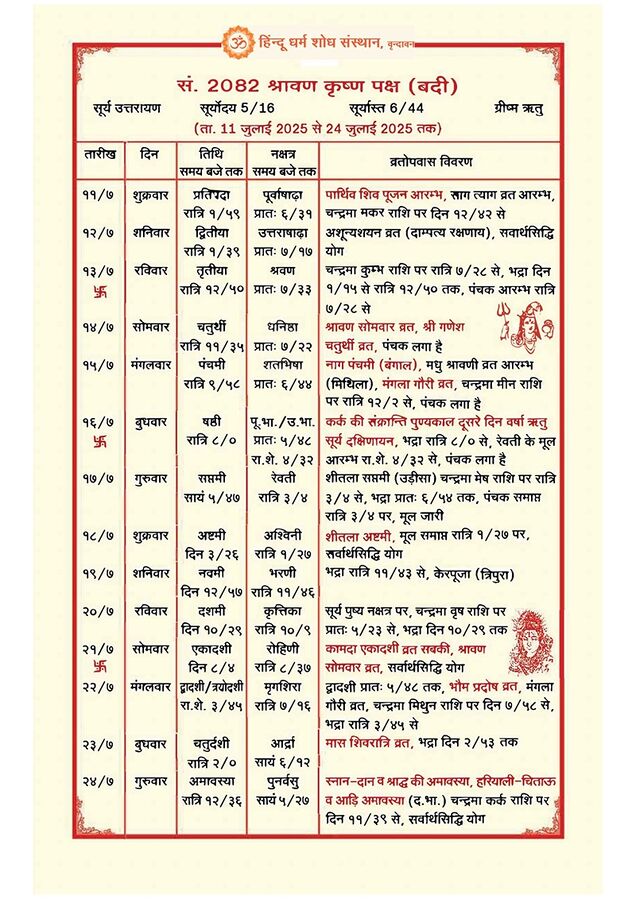 हिंन्दू धर्म शोध संस्थान, वृन्दावन
सं. 2082 श्रावण कृष्ण पक्ष (बदी)
सूर्य उत्तरायण सूर्योदय 5/16 सूर्यास्त 6/44 ग्रीष्म ऋतु
(ता. 11 जुलाई 2025 से 24 जुलाई 2025 तक)
तारीख दिन तिथि नक्षत्र व्रतोपवास विवरण
समय बजे तक समय बजे तक
११/७ शुक्रवार प्रतिपदा पूर्वाषाढ़ा पार्थिव शिव पूजन आरम्भ, साग त्याग व्रत आरम्भ,
रात्रि १/५९ प्रातः ६/३१ चन्द्रमा मकर राशि पर दिन १२/४२ से
१२/७ शनिवार द्वितीया उत्तराषाढ़ा अशून्यशयन व्रत (दाम्पत्य रक्षणाय), सवार्थसिद्धि
रात्रि १/३९ प्रातः ७/१७ योग
१३/७ रविवार तृतीया श्रवण चन्द्रमा कुम्भ राशि पर रात्रि ७/२८ से, भद्रा दिन
रात्रि १२/५० प्रातः ७/३३ १/१५ से रात्रि १२/५० तक, पंचक आरम्भ रात्रि
७/२८ से
१४/७ सोमवार चतुर्थी धनिष्ठा श्रावण सोमवार व्रत, श्री गणेश
रात्रि ११/३५ प्रातः ७/२२ चतुर्थी व्रत, पंचक लगा है
१५/७ मंगलवार पंचमी शतभिषा नाग पंचमी (बंगाल), मधु श्रावणी व्रत आरम्भ
रात्रि ९/५८ प्रातः ६/४४ (मिथिला), मंगला गौरी व्रत, चन्द्रमा मीन राशि
पर रात्रि १२/२ से, पंचक लगा है
१६/७ बुधवार षष्ठी पू.भा./उ.भा. कर्क की संक्रान्ति पुण्यकाल दूसरे दिन वर्षा ऋतु
रात्रि ८/० प्रातः ५/४८ सूर्य दक्षिणायन, भद्रा रात्रि ८/० से, रेवती के मूल
रा.शे. ४/३२ आरम्भ रा.शे. ४/३२ से, पंचक लगा है
१७/७ गुरुवार सप्तमी रेवती शीतला सप्तमी (उड़ीसा) चन्द्रमा मेष राशि पर रात्रि
सायं ५/४७ रात्रि ३/४ ३/४ से, भद्रा प्रातः ६/५४ तक, पंचक समाप्त
रात्रि ३/४ पर, मूल जारी
१८/७ शुक्रवार अष्टमी अश्विनी शीतला अष्टमी, मूल समाप्त रात्रि १/२७ पर,
दिन ३/२६ रात्रि १/२७ सर्वार्थसिद्धि योग
१९/७ शनिवार नवमी भरणी भद्रा रात्रि ११/४३ से, केरपूजा (त्रिपुरा)
दिन १२/५७ रात्रि ११/४६
२०/७ रविवार दशमी कृत्तिका सूर्य पुष्य नक्षत्र पर, चन्द्रमा वृष राशि पर
दिन १०/२९ रात्रि १०/९ प्रातः ५/२३ से, भद्रा दिन १०/२९ तक
२१/७ सोमवार एकादशी रोहिणी कामदा एकादशी व्रत सबकी, श्रावण
दिन ८/४ रात्रि ८/३७ सोमवार व्रत, सर्वार्थसिद्धि योग
२२/७ मंगलवार द्वादशी/त्रयोदशी मृगशिरा द्वादशी प्रातः ५/४८ तक, भौम प्रदोष व्रत, मंगला
रा.शे. ३/४५ रात्रि ७/१६ गौरी व्रत, चन्द्रमा मिथुन राशि पर दिन ७/५८ से,
भद्रा रात्रि ३/४५ से
२३/७ बुधवार चतुर्दशी आर्द्रा मास शिवरात्रि व्रत, भद्रा दिन २/५३ तक
रात्रि २/० सायं ६/१२
२४/७ गुरुवार अमावस्या पुनर्वसु स्नान-दान व श्राद्ध की अमावस्या, हरियाली-चिताऊ
रात्रि १२/३६ सायं ५/२७ व आड़ि अमावस्या (द.भा.) चन्द्रमा कर्क राशि पर
दिन ११/३९ से, सर्वार्थसिद्धि योग